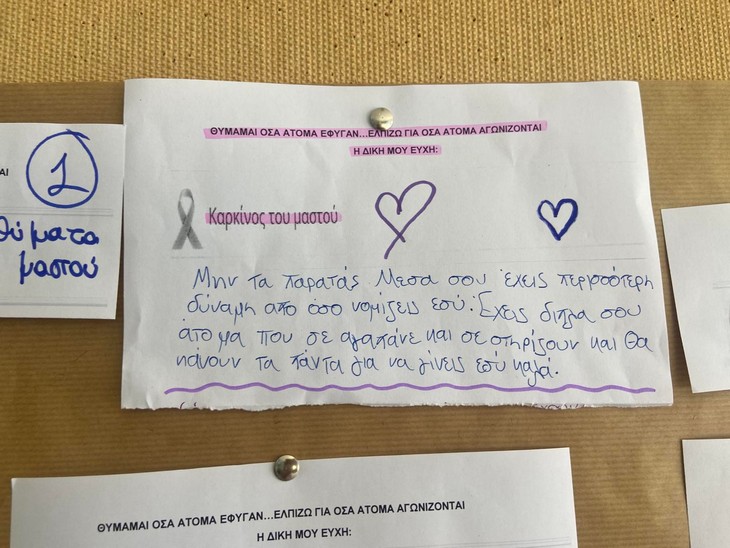 ΘΥΜΑΜΑΙ ΟΣΑ ΑΤΟΜΑ ΕΦΥΓΑΝ...ΕΛΠΙΖΩ ΓΙΑ ΟΣΑ ΑΤΟΜΑ ΑΓΩΝΙΖΟΝΤΑΙ
Η ΔΙΚΗ ΜΟΥ ΕΥΧΗ:
Καρκίνος του μαστού
Μην τα παρατάς. Μεσα σου έχεις περισσότερη
δύναμη απο όσο νομίζεις εσύ. Έχεις διπλα σου
άτομα που σε αγαπάνε και σε στηρίζουν και θα
κάνουν τα πάντα για να γίνεις εσύ καλά.
ΑΙ
1
θύματα
μαστού
ΘΥΜΑΜΑΙ ΟΣΑ ΑΤΟΜΑ ΕΦΥΓΑΝ...ΕΛΠΙΖΩ ΓΙΑ ΟΣΑ ΑΤΟΜΑ ΑΓΩΝΙΖΟΝΤΑΙ
Η ΔΙΚΗ ΜΟΥ ΕΥΧΗ: